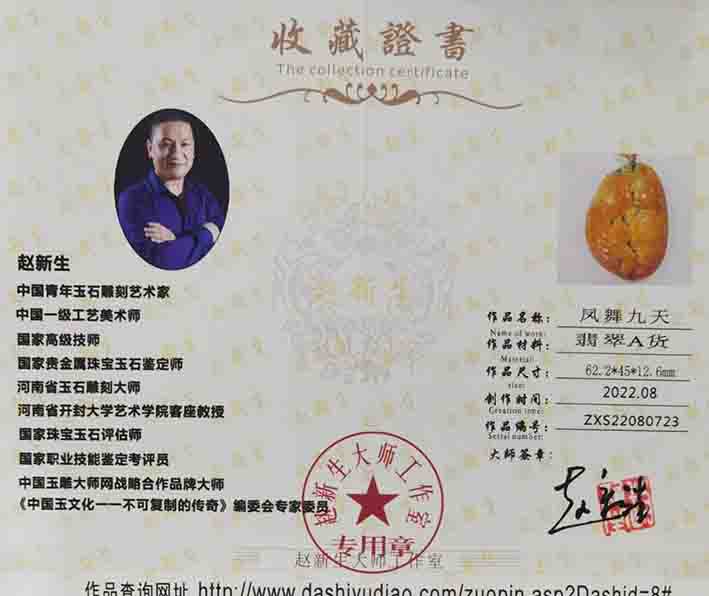 收藏證書
The collection certificate
赵新生
中国青年玉石雕刻艺术家
中国一级工艺美术师
国家高级技师
国家贵金属珠宝玉石鉴定师
河南省玉石雕刻大师
河南省开封大学艺术学院客座教授
国家珠宝玉石评估师
国家职业技能鉴定考评员
中国玉雕大师网战略合作品牌大师
《中国玉文化一一不可复制的传奇》编委会专家委员
赵新生
作品名称: 凤舞九天
Name of work:
作品材料: 翡翠A货
Material:
作品尺寸: 62.2*45*12.6mm
size:
创作时间: 2022.08
Creation time:
作品编号: ZXS22080723
Serial number:
大师签章:
赵新生大师工作室
专用章
赵新生大师工作室
作品查询网址 http://www.dashiyudiao.com/zuopin.asp?Dashid=8#